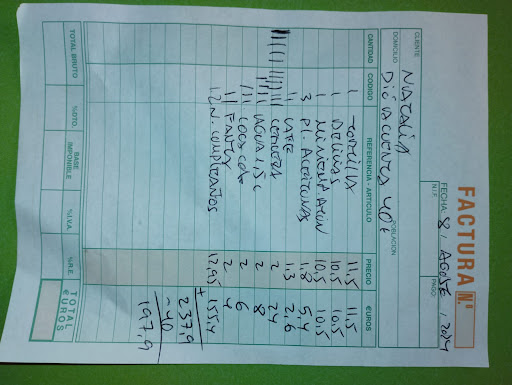 FACTURA N.º
FECHA: 8, AGOSTO, 2024
N.I.F. PAGO:
CLIENTE NATALIA
DOMICILIO POBLACIÓN
DIO A CUENTA 40€
CANTIDAD CODIGO REFERENCIA - ARTICULO PRECIO EUROS
1 TORTILLA 11,5 11,5
1 DELICIAS 10,5 10,5
1 ATÚN 10,5 10,5
3 PL. ACEITUNAS 1,8 5,4
11 CAFE 1,3 2,6
CERVEZA 2 24
AGUA 1,5 L 2 8
111 COCA COLA 2 6
11 FANTA 2 4
12 N. CUMPLEAÑOS 12,95 155,4
+
237,9
-40
197,9
TOTAL BRUTO %DTO. BASE IMPONIBLE %I.V.A. %R.E. TOTAL EUROS